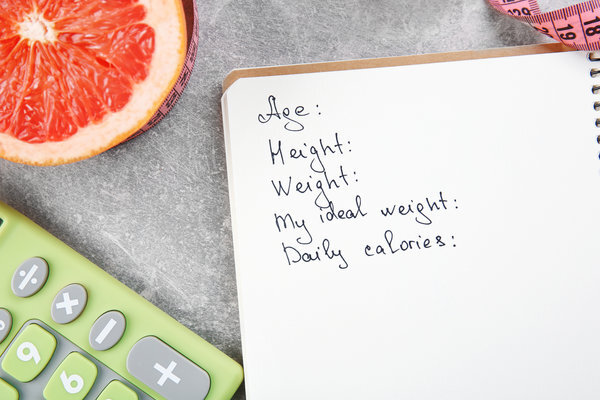 Age:
Height:
Weight:
My ideal weight:
Daily calories:
19
18
÷
×
−
+
9
6